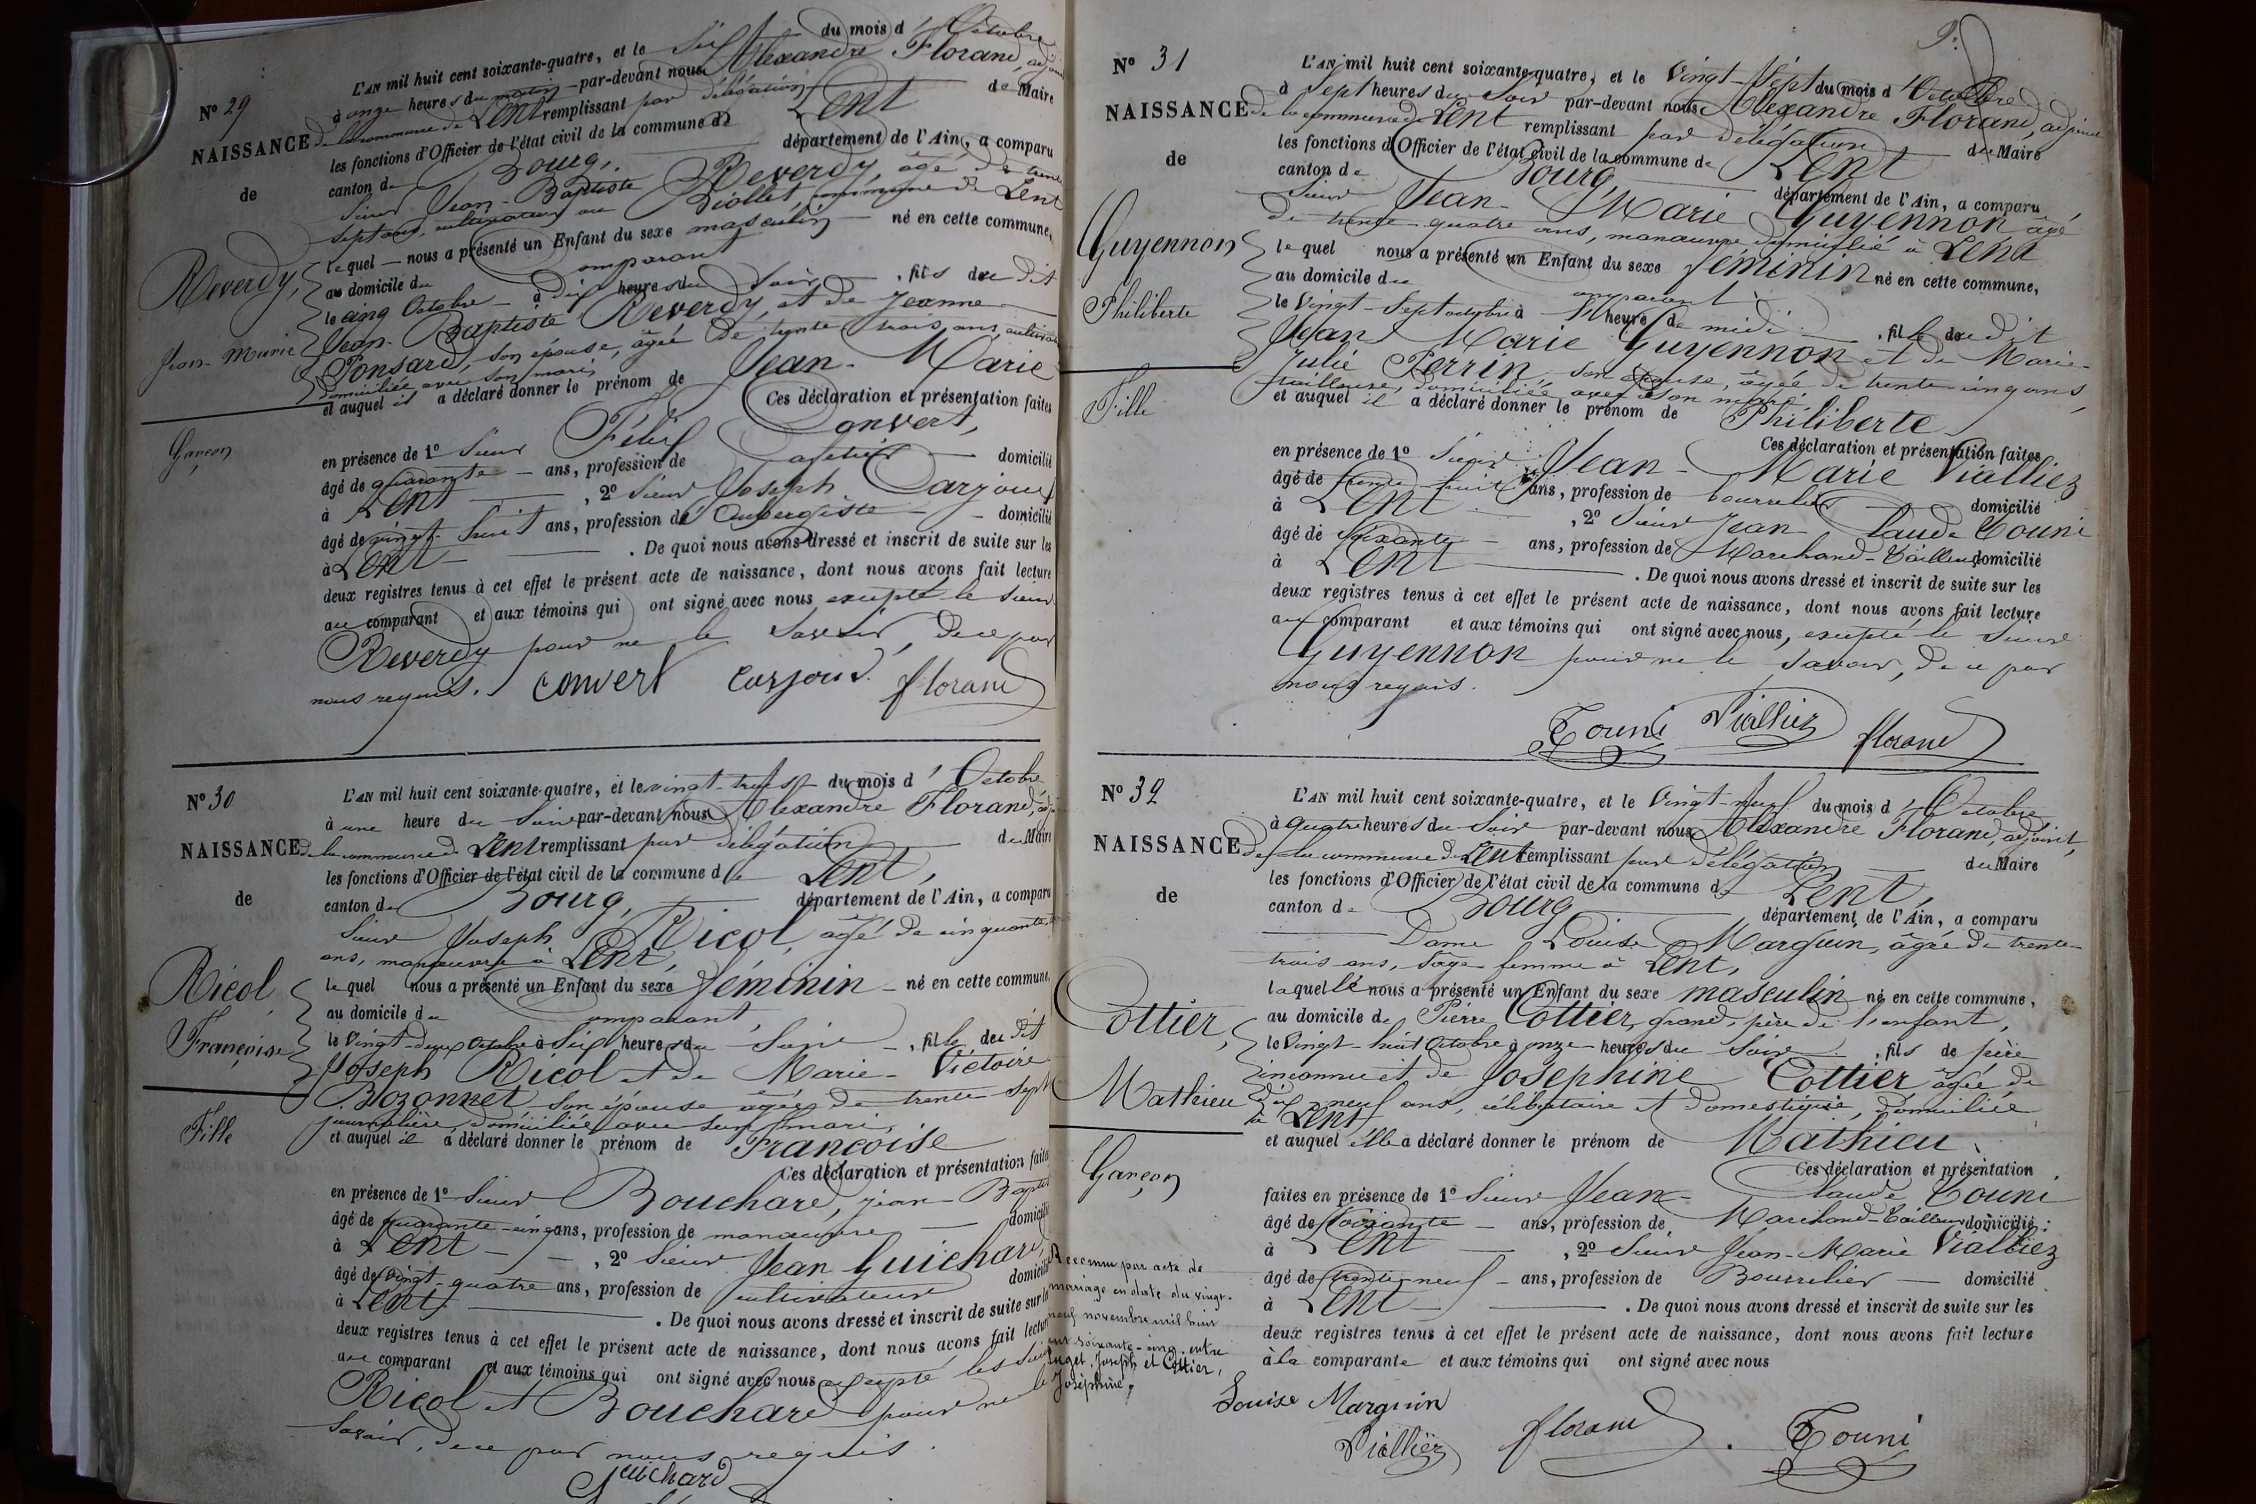 N° 29
NAISSANCE
de
Reverdy,
Jean-Marie
Garçon
L'AN mil huit cent soixante-quatre, et le six du mois d'Octobre
à onze heures du matin par-devant nous Alexandre Florand, adjoint
de la commune de Lent remplissant par délégation du Maire
les fonctions d'Officier de l'état civil de la commune de Lent
canton de Bourg, département de l'Ain, a comparu
Sieur Jean-Baptiste Reverdy, âgé de trente
sept ans, cultivateur au Biollet, commune de Lent
lequel nous a présenté un Enfant du sexe masculin né en cette commune,
au domicile du comparant
le cinq Octobre à dix heures du soir, fils du dit
Jean-Baptiste Reverdy, et de Jeanne
Ponsard, son épouse, âgée de trente trois ans,
domiciliée avec son mari,
et auquel il a déclaré donner le prénom de Jean-Marie
Ces déclaration et présentation faites
en présence de 1° Sieur Félix Convert,
âgé de quarante ans, profession de domicilié
à Lent, 2° Sieur Joseph Carjoux
âgé de vingt-huit ans, profession de Aubergiste domicilié
à Lent. De quoi nous avons dressé et inscrit de suite sur les
deux registres tenus à cet effet le présent acte de naissance, dont nous avons fait lecture
au comparant et aux témoins qui ont signé avec nous excepté le Sieur
Reverdy pour ne le savoir, de ce par
nous requis. Convert Carjoux Florand
N° 30
NAISSANCE
de
Ricol,
Françoise
Fille
L'AN mil huit cent soixante-quatre, et le vingt-trois du mois d'Octobre
à une heure du Soir par-devant nous Alexandre Florand,
de la commune de Lent remplissant par délégation du Maire
les fonctions d'Officier de l'état civil de la commune de Lent,
canton de Bourg, département de l'Ain, a comparu
Sieur Joseph Ricol, âgé de cinquante
ans, manœuvre à Lent,
lequel nous a présenté un Enfant du sexe féminin né en cette commune,
au domicile du comparant,
le Vingt-deux Octobre à Six heures du Soir, fille du dit
Joseph Ricol et de Marie-Victoire
Bozonnet son épouse âgée de trente sept
journalière, domiciliée avec son mari,
et auquel il a déclaré donner le prénom de Françoise
Ces déclaration et présentation faites
en présence de 1° Sieur Bouchard, Jean-Baptiste
âgé de quarante-cinq ans, profession de manœuvre domicilié
à Lent, 2° Sieur Jean Guichard,
âgé de Vingt-quatre ans, profession de cultivateur domicilié
à Lent. De quoi nous avons dressé et inscrit de suite sur les
deux registres tenus à cet effet le présent acte de naissance, dont nous avons fait lecture
au comparant et aux témoins qui ont signé avec nous excepté les Sieurs
Ricol et Bouchard pour ne le
savoir, de ce par nous requis.
Guichard
N° 31
NAISSANCE
de
Guyennon
Philiberte
Fille
L'AN mil huit cent soixante-quatre, et le Vingt-Sept du mois d'Octobre
à Sept heures du Soir par-devant nous Alexandre Florand, adjoint
de la commune de Lent remplissant par délégation du Maire
les fonctions d'Officier de l'état civil de la commune de Lent
canton de Bourg, département de l'Ain, a comparu
Sieur Jean-Marie Guyennon âgé
de trente-quatre ans, manœuvre domicilié à Lent
lequel nous a présenté un Enfant du sexe féminin né en cette commune,
au domicile du comparant
le Vingt-Sept octobre à heure de midi, fille du dit
Jean Marie Guyennon et de Marie-
Julie Perrin son épouse, âgée de trente-cinq ans,
tailleuse, domiciliée avec son mari,
et auquel il a déclaré donner le prénom de Philiberte
Ces déclaration et présentation faites
en présence de 1° Sieur Jean-Marie Vialliez
âgé de trente-huit ans, profession de bourrelier domicilié
à Lent, 2° Sieur Jean-Claude Touni
âgé de soixante ans, profession de Marchand-Tailleur domicilié
à Lent. De quoi nous avons dressé et inscrit de suite sur les
deux registres tenus à cet effet le présent acte de naissance, dont nous avons fait lecture
au comparant et aux témoins qui ont signé avec nous, excepté le Sieur
Guyennon pour ne le savoir, de ce par
nous requis.
Touni Vialliez Florand
N° 32
NAISSANCE
de
Cottier,
Mathieu
Garçon
Reconnu par acte de
mariage en date du vingt-
neuf novembre mil huit
cent soixante-cinq, entre
Joseph et Cottier,
Joséphine.
L'AN mil huit cent soixante-quatre, et le Vingt-neuf du mois d'Octobre
à quatre heures du Soir par-devant nous Alexandre Florand, adjoint,
de la commune de Lent remplissant par délégation du Maire
les fonctions d'Officier de l'état civil de la commune de Lent,
canton de Bourg département de l'Ain, a comparu
Dame Louise Marguin, âgée de trente-
trois ans, sage-femme à Lent,
laquelle nous a présenté un Enfant du sexe masculin né en cette commune,
au domicile de Pierre Cottier, grand-père de l'enfant,
le Vingt-huit Octobre à onze heures du Soir, fils de père
inconnu et de Joséphine Cottier âgée de
dix-neuf ans, célibataire et domestique, domiciliée
à Lent
et auquel elle a déclaré donner le prénom de Mathieu
Ces déclaration et présentation
faites en présence de 1° Sieur Jean-Claude Touni
âgé de soixante ans, profession de Marchand-Tailleur domicilié
à Lent, 2° Sieur Jean-Marie Vialliez
âgé de trente-neuf ans, profession de Bourrelier domicilié
à Lent. De quoi nous avons dressé et inscrit de suite sur les
deux registres tenus à cet effet le présent acte de naissance, dont nous avons fait lecture
à la comparante et aux témoins qui ont signé avec nous
Louise Marguin
Vialliez Florand Touni